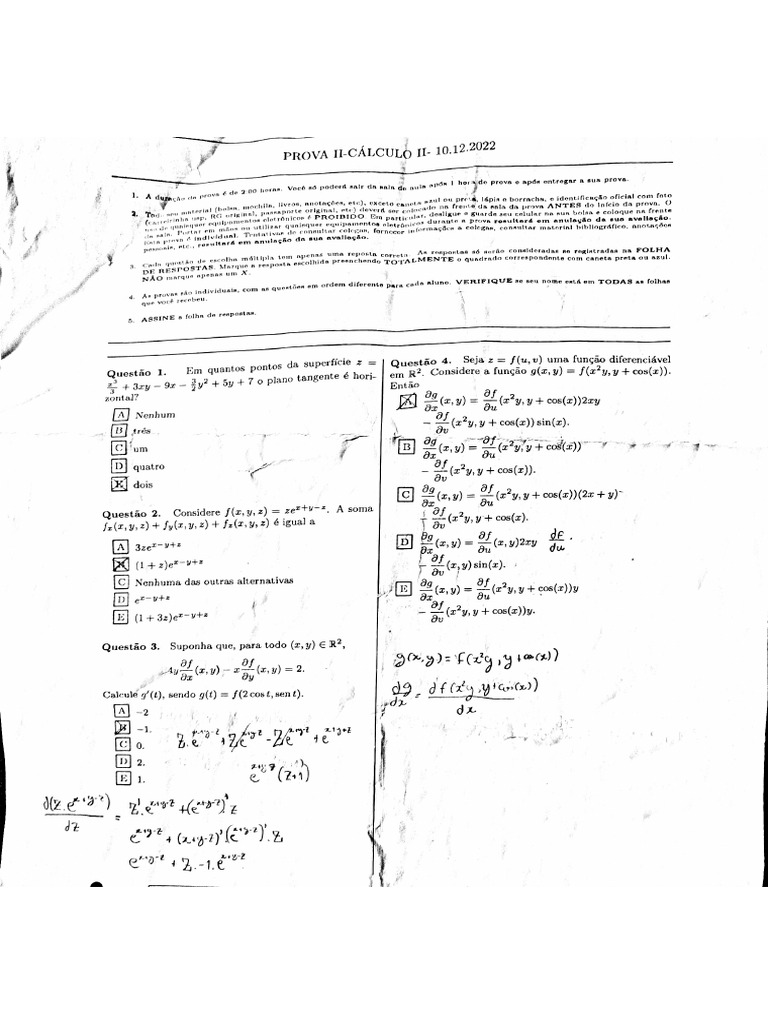 PROVA II-CÁLCULO II- 10.12.2022
1. A duração da prova é de 2:00 horas. Você só poderá sair da sala de aula após 1 hora de prova e após entregar a sua prova.
2. Todo seu material (bolsa, mochila, livros, anotações, etc), exceto caneta azul ou preta, lápis e borracha, e identificação oficial com foto
(carteirinha usp, RG original, passaporte original, etc) deverá ser colocado na frente da sala da prova ANTES do início da prova. O
uso de quaisquer equipamentos eletrônicos é PROIBIDO. Em particular, desligue e guarde seu celular na sua bolsa e coloque na frente
da sala. Portar em mãos ou utilizar quaisquer equipamentos eletrônicos durante a prova resultará em anulação da sua avaliação.
Esta prova é individual. Tentativas de consultar colegas, fornecer informações a colegas, consultar material bibliográfico, anotações
pessoais, etc., resultará em anulação da sua avaliação.
3. Cada questão de escolha múltipla tem apenas uma reposta correta. As respostas só serão consideradas se registradas na FOLHA
DE RESPOSTAS. Marque a resposta escolhida preenchendo TOTALMENTE o quadrado correspondente com caneta preta ou azul.
NÃO marque apenas um X.
4. As provas são individuais, com as questões em ordem diferente para cada aluno. VERIFIQUE se seu nome está em TODAS as folhas
que você recebeu.
5. ASSINE a folha de respostas.
Questão 1. Em quantos pontos da superfície z =
x³/3 + 3xy − 9x − 3/2 y² + 5y + 7 o plano tangente é hori-
zontal?
A Nenhum
B três
C um
D quatro
E dois
Questão 2. Considere f(x, y, z) = ze^(x+y−z). A soma
fx(x, y, z) + fy(x, y, z) + fz(x, y, z) é igual a
A 3ze^(x−y+z)
B (1 + z)e^(x−y+z)
C Nenhuma das outras alternativas
D e^(x−y+z)
E (1 + 3z)e^(x−y+z)
Questão 3. Suponha que, para todo (x, y) ∈ ℝ²,
4y ∂f/∂x (x, y) − x ∂f/∂y (x, y) = 2.
Calcule g′(t), sendo g(t) = f(2 cos t, sen t).
A −2
B −1.
C 0.
D 2.
E 1.
z.e^(x+y-z) + ze^(x+y-z) - ze^(x+y-z) + e^(x+y+z)
e^(x+y-z) (z+1)
d(z.e^(x+y-z))/dz = z' e^(x+y-z) + (e^(x+y-z))' z
e^(x+y-z) + (x+y-z)' (e^(x+y-z))' . z
e^(x+y-z) + z.-1.e^(x+y-z)
Questão 4. Seja z = f(u, v) uma função diferenciável
em ℝ². Considere a função g(x, y) = f(x²y, y + cos(x)).
Então
A ∂g/∂x (x, y) = ∂f/∂u (x²y, y + cos(x))2xy
− ∂f/∂v (x²y, y + cos(x)) sin(x).
B ∂g/∂x (x, y) = ∂f/∂u (x²y, y + cos(x))
− ∂f/∂v (x²y, y + cos(x)).
C ∂g/∂x (x, y) = ∂f/∂u (x²y, y + cos(x))(2x + y)
+ ∂f/∂v (x²y, y + cos(x).
D ∂g/∂x (x, y) = ∂f/∂u (x, y)2xy df/du
− ∂f/∂v (x, y) sin(x).
E ∂g/∂x (x, y) = ∂f/∂u (x²y, y + cos(x))y
− ∂f/∂v (x²y, y + cos(x))y.
g(x,y) = f(x²y, y+cos(x))
dg/dx = df(x²y, y+cos(x))/dx